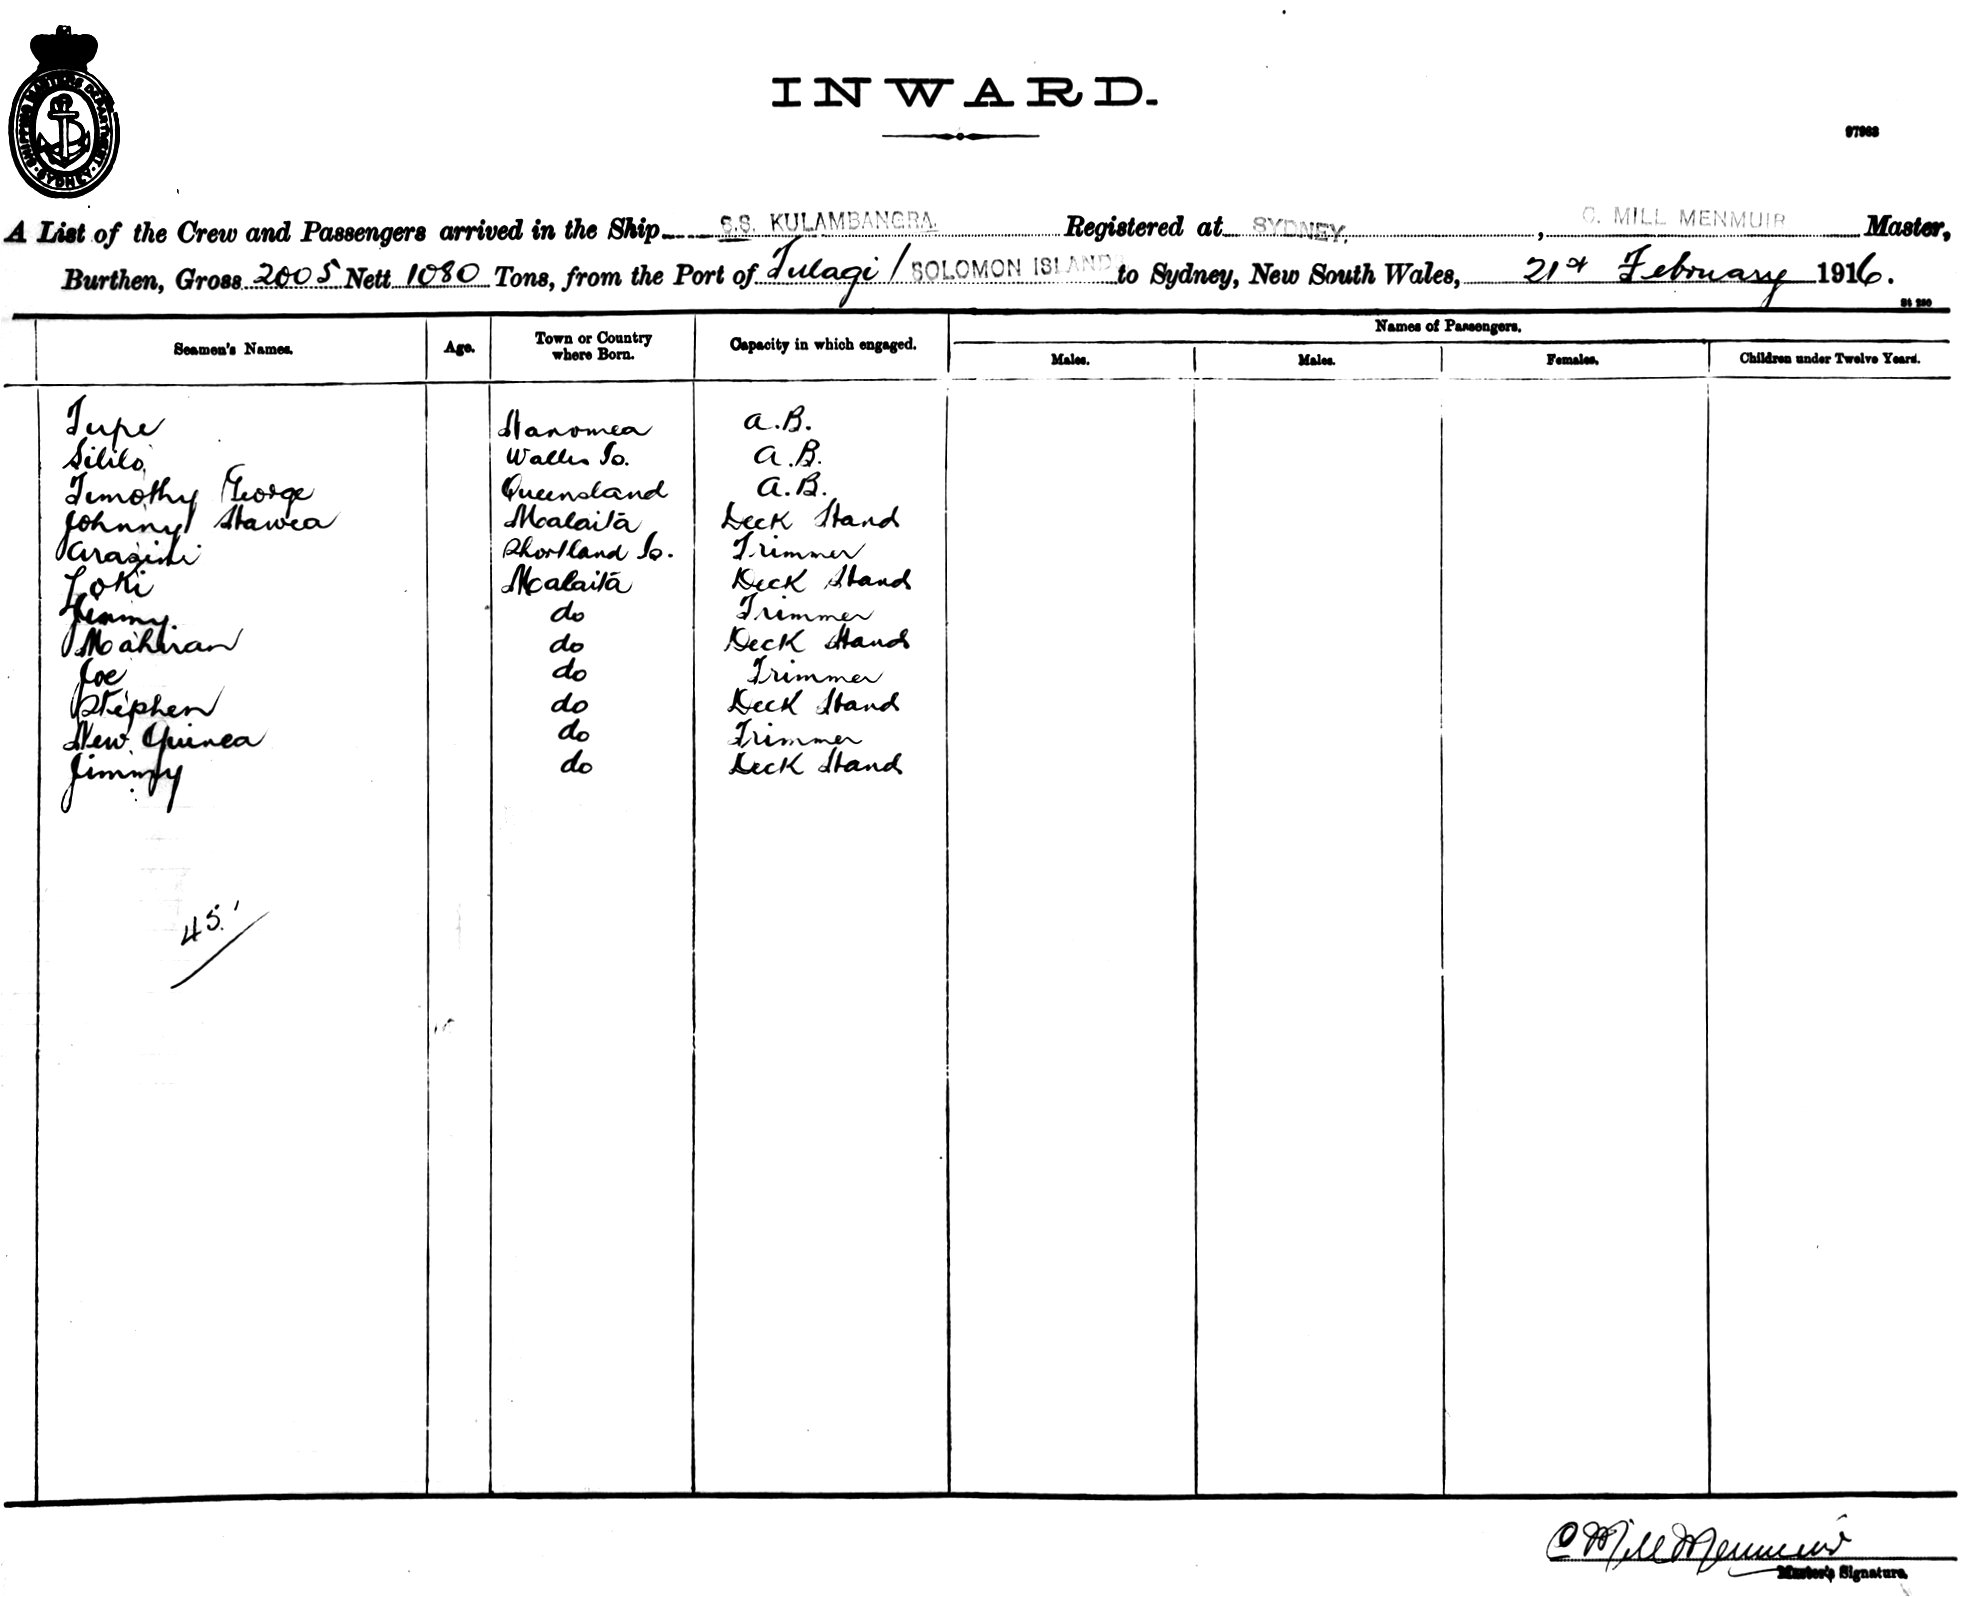 SHIPPING MASTERS DEPARTMENT. SYDNEY.
INWARD.
97963
A List of the Crew and Passengers arrived in the Ship S.S. KULAMBANGRA. Registered at SYDNEY, C. MILL MENMUIR Master,
Burthen, Gross 2005 Nett 1080 Tons, from the Port of Tulagi / SOLOMON ISLANDS to Sydney, New South Wales, 21st February 1916.
Names of Passengers.
Seamen's Names. Age. Town or Country where Born. Capacity in which engaged. Males. Males. Females. Children under Twelve Years.
Tupe Nanomea A.B.
Sililo Wallis Is. A.B.
Timothy George Queensland A.B.
Johnny Hawea Malaita Deck Hand
Shortland Is. Trimmer
Loki Malaita Deck Hand
Jimmy. do Trimmer
do Deck Hand
Joe do Trimmer
Stephen do Deck Hand
New Guinea do Trimmer
Jimmy do Deck Hand
45
C Mill Menmuir
Master's Signature.